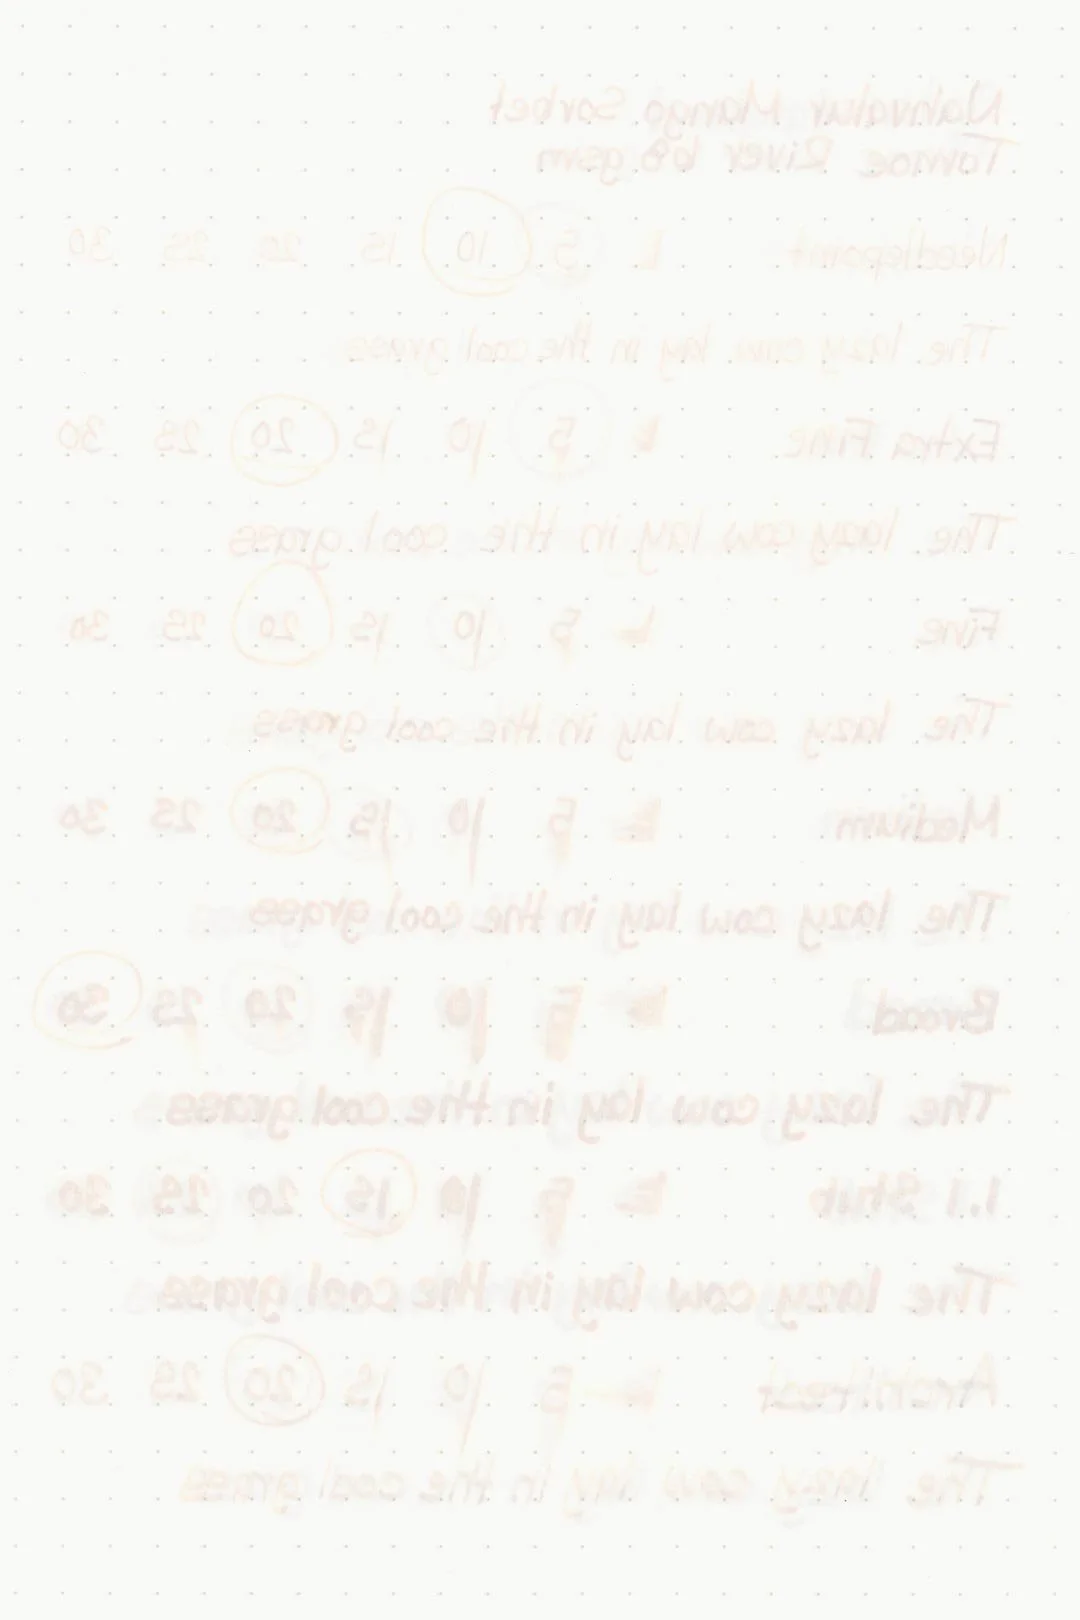 Nahvalur Mango Sorbet
Tomoe River 68 gsm
Needlepoint 1 5 10 15 20 25 30
The lazy cow lay in the cool grass
Extra Fine 1 5 10 15 20 25 30
The lazy cow lay in the cool grass
Fine 1 5 10 15 20 25 30
The lazy cow lay in the cool grass
Medium 1 5 10 15 20 25 30
The lazy cow lay in the cool grass
Broad 1 5 10 15 20 25 30
The lazy cow lay in the cool grass
1.1 Stub 1 5 10 15 20 25 30
The lazy cow lay in the cool grass
Architect 1 5 10 15 20 25 30
The lazy cow lay in the cool grass